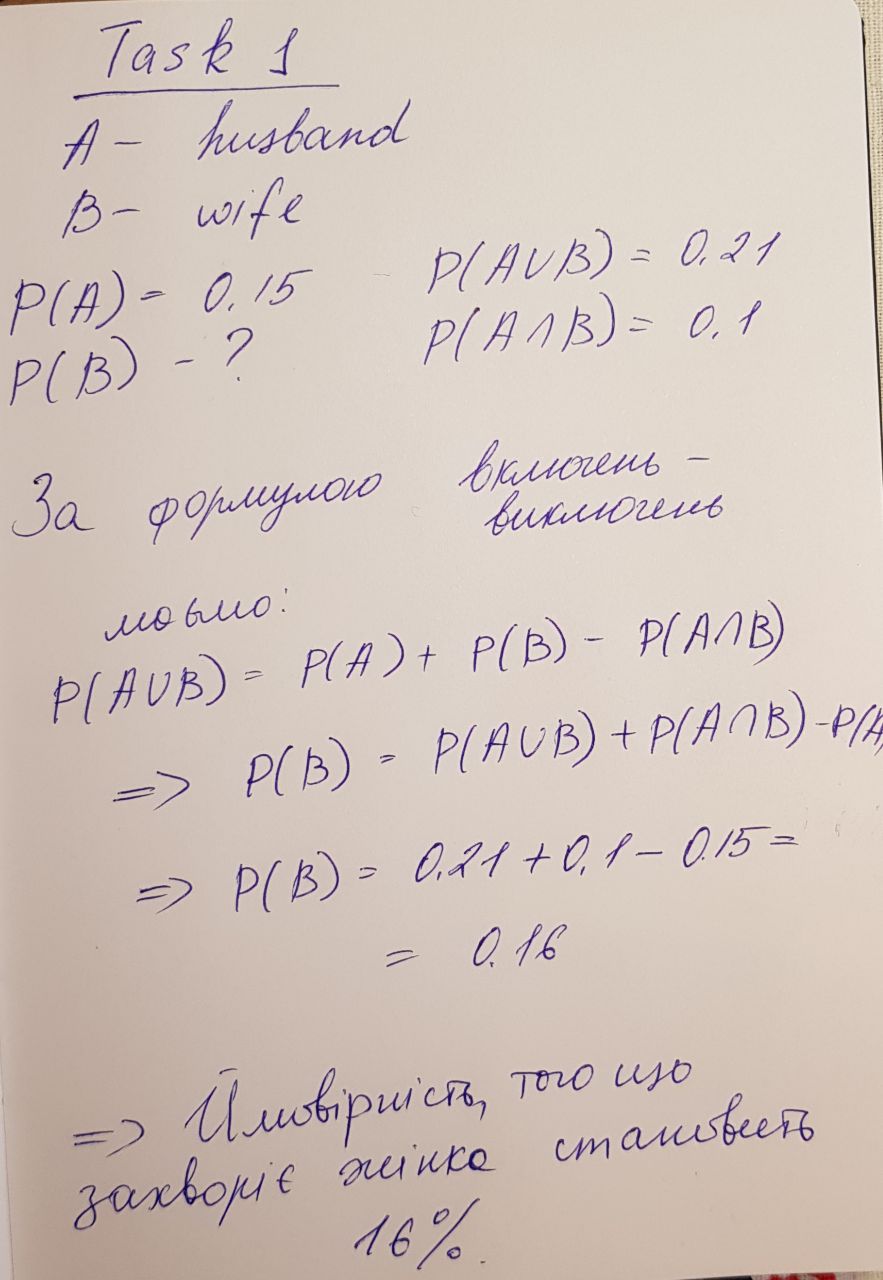 Task 1
A - husband
B - wife
P(A) = 0.15
P(B) - ?
P(A∪B) = 0.21
P(A∩B) = 0.1
За формулою включень -
виключень
маємо:
P(A∪B) = P(A) + P(B) - P(A∩B)
=> P(B) = P(A∪B) + P(A∩B) - P(A
=> P(B) = 0.21 + 0.1 - 0.15 =
= 0.16
=> Ймовірність, того що
захворіє жінка становить
16%.